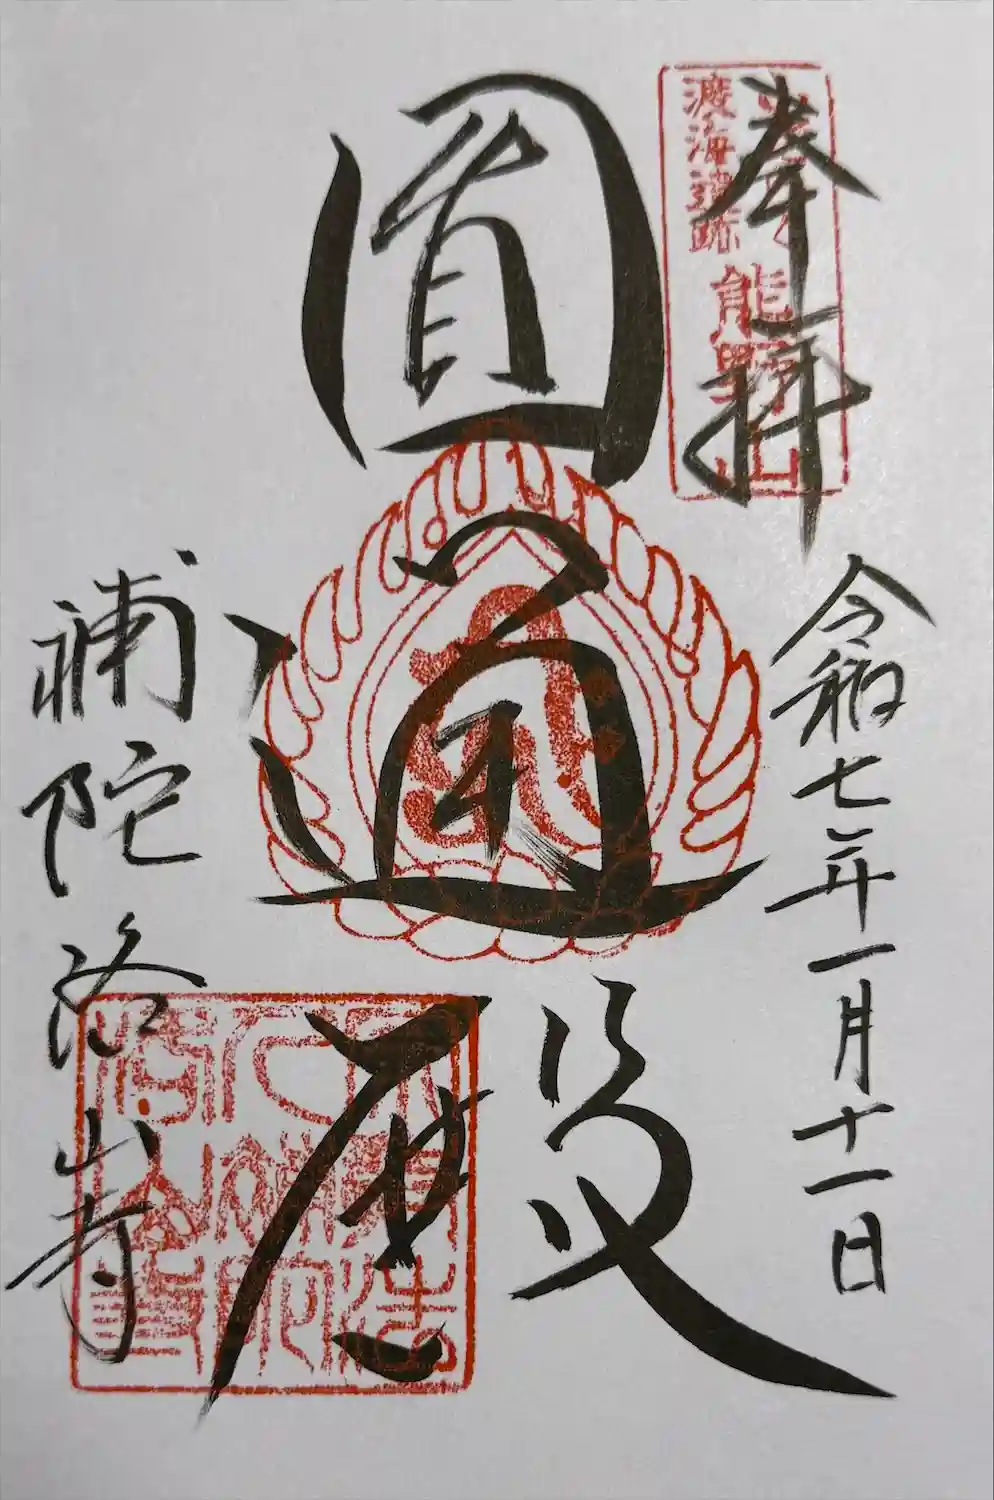 奉拝
渡海遺跡
熊野山
令和七年一月十一日
圓通殿
補陀洛山寺